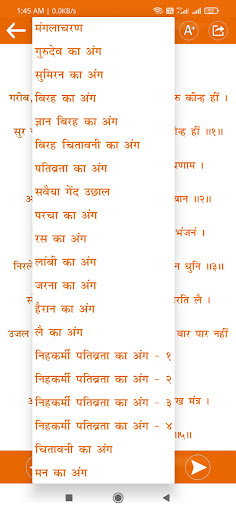 1:45 AM | 0.0KB/s
मंगलाचरण
गुरुदेव का अंग
सुमिरन का अंग
बिरह का अंग
ज्ञान बिरह का अंग
बिरह चितावनी का अंग
पतिव्रता का अंग
सवैया गेंद उछाल
परचा का अंग
रस का अंग
लांबी का अंग
जरना का अंग
हैरान का अंग
लै का अंग
निहकर्मी पतिव्रता का अंग - १
निहकर्मी पतिव्रता का अंग - २
निहकर्मी पतिव्रता का अंग - ३
निहकर्मी पतिव्रता का अंग - ४
चितावनी का अंग
मन का अंग
A+
गरीब,
रु कीन्ह हीं ।
सुर
न्ह हीं ॥१॥
णाम ।
बान ॥२॥
भंजनं ।
निरले
न धुनि ॥३॥
रति लै ।
उजल
वार पार नहीं
ख मंत्र ।
॥५॥